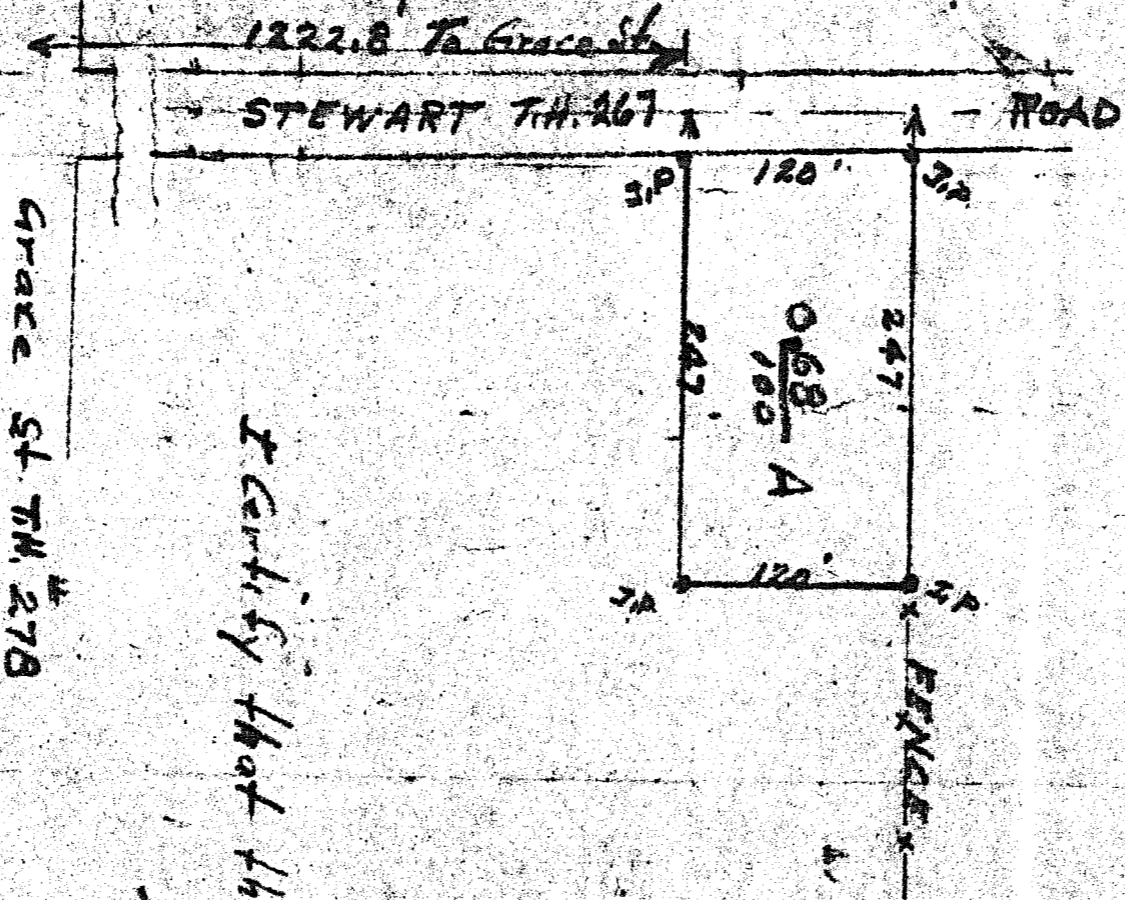 1222.8' To Grace St.
STEWART T.H. 267 ROAD
I.P
120'
I.P.
247'
0.68/100 A
247'
120'
I.P.
I.P
FENCE
Grace St. T.H. # 278
I Certify that th